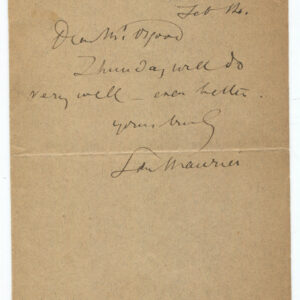 Feb 12.
Dear Mr. Osgood
Thursday will do
very well – even better.
yours truly
du Maurier